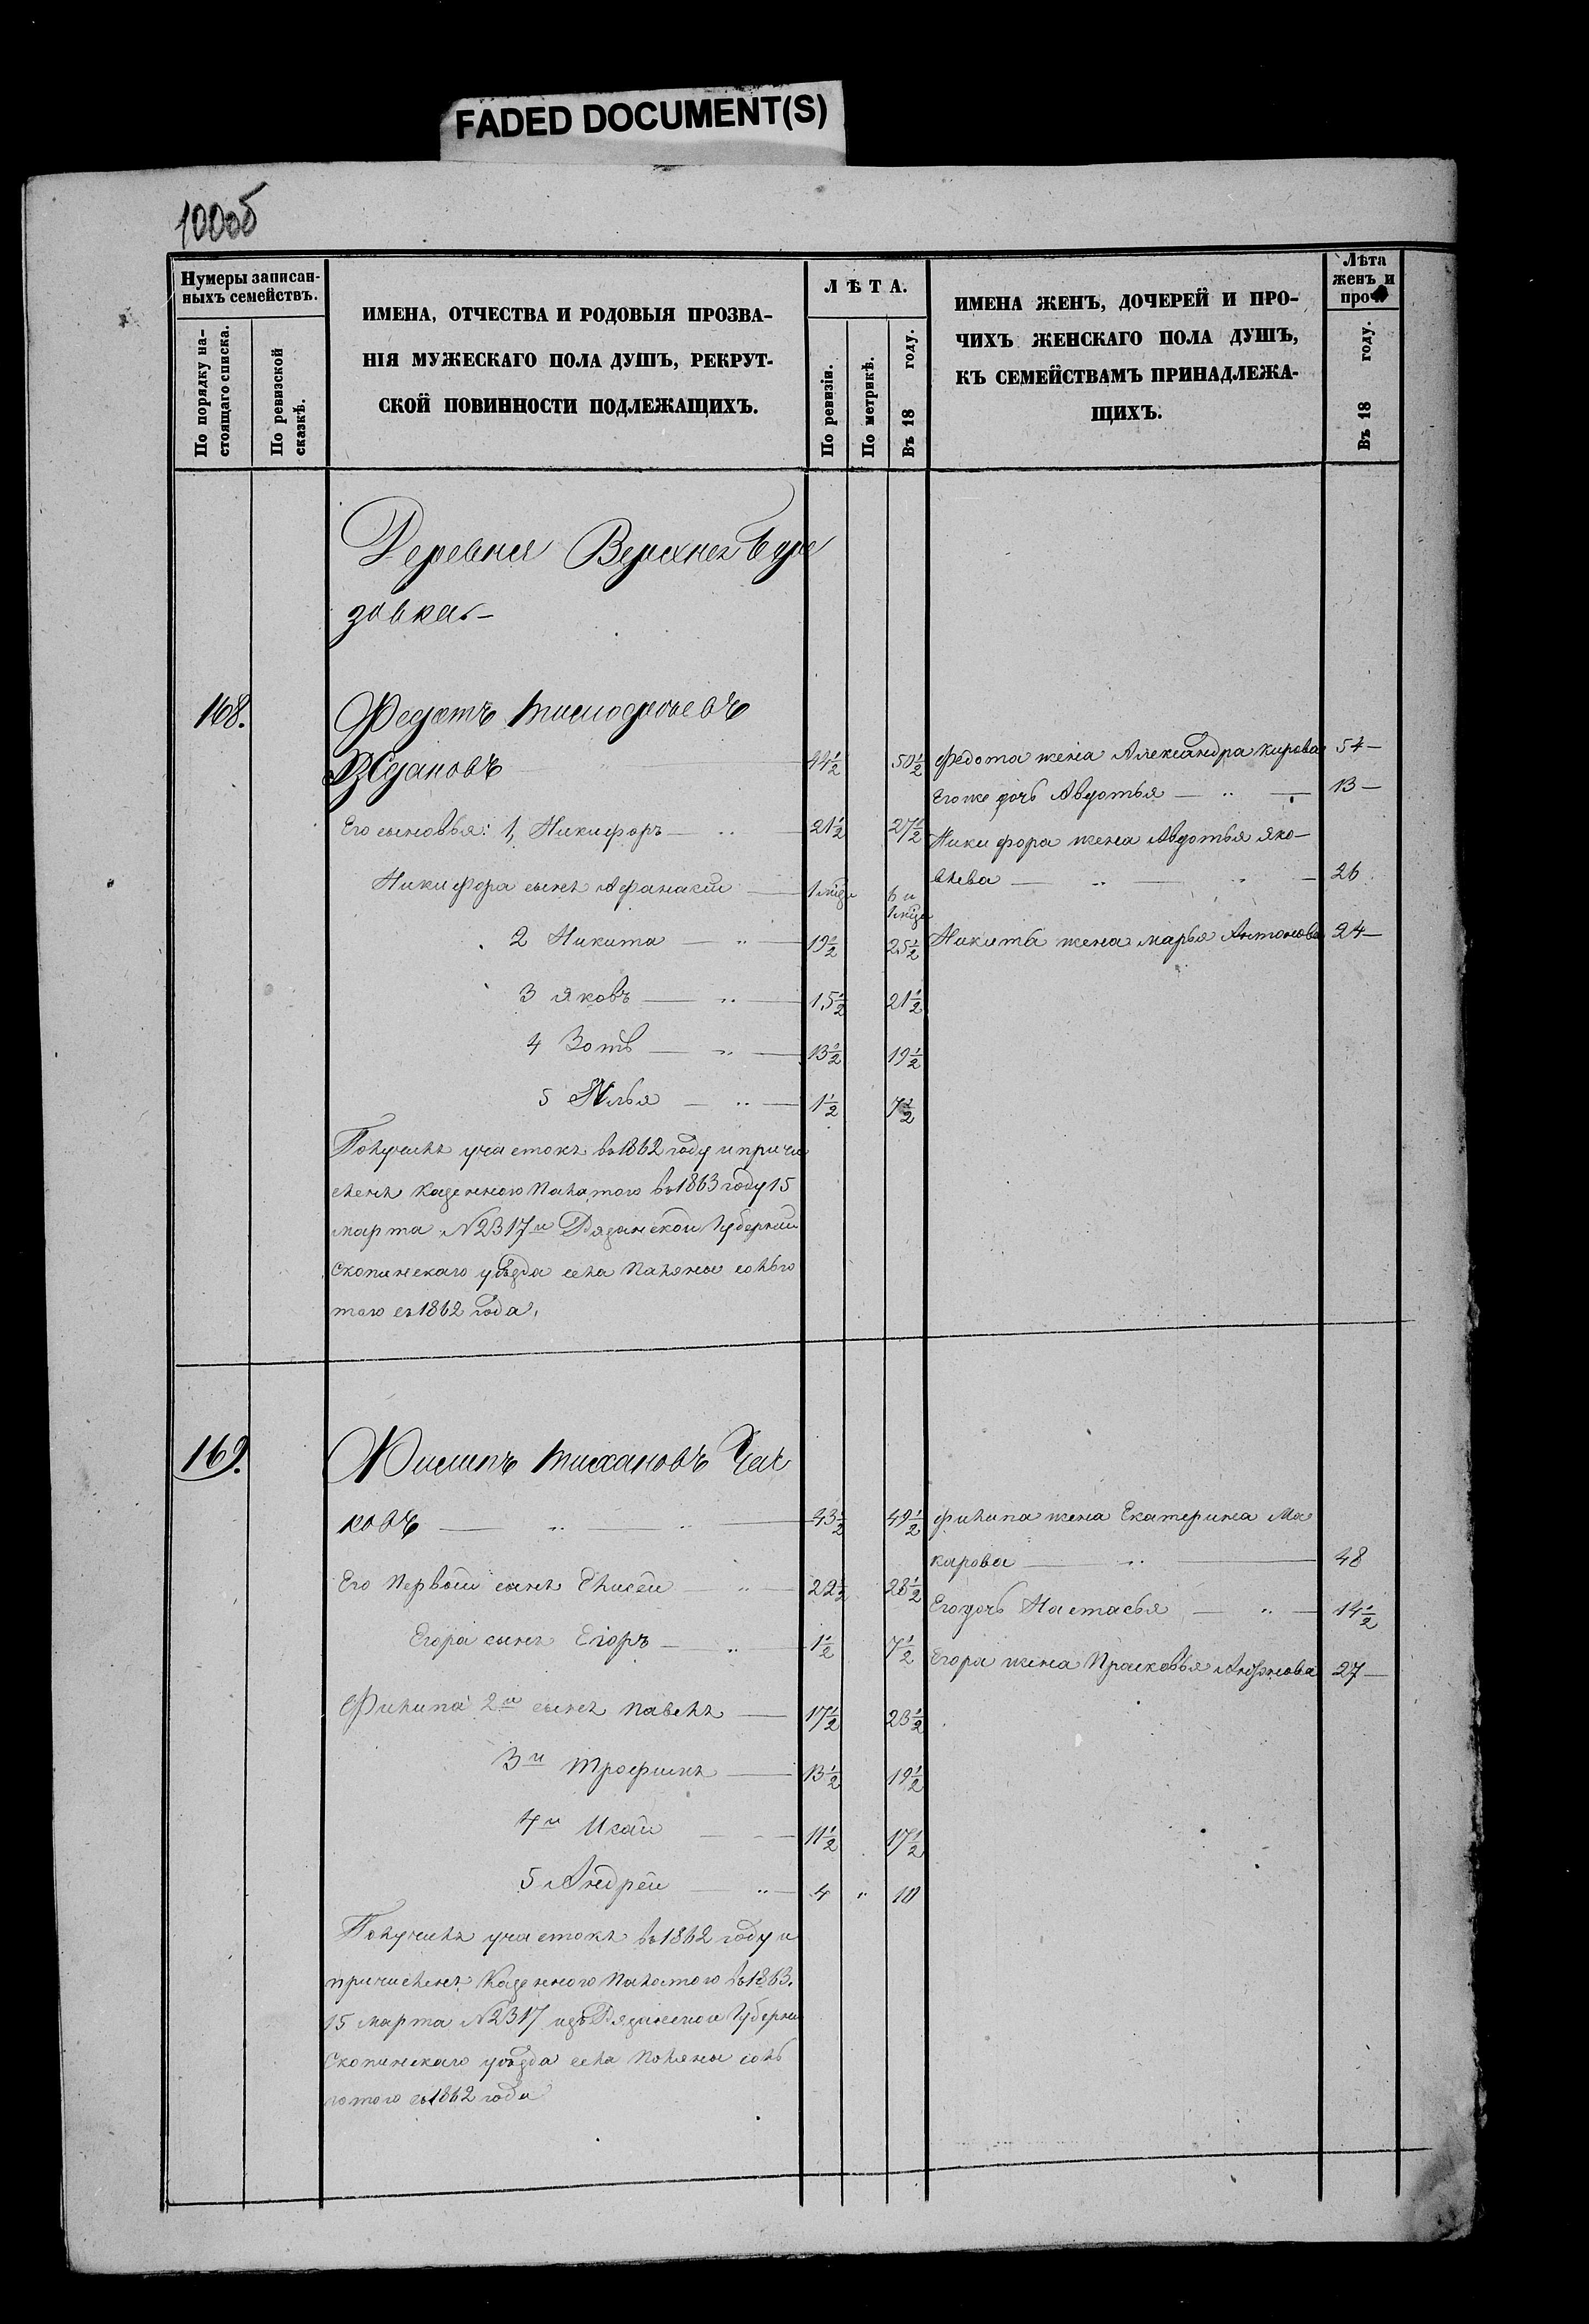 FADED DOCUMENT(S)
100об
Нумеры записан-
ныхъ семействъ.
По порядку на-
стоящаго списка.
По ревизской
сказкѣ.
ИМЕНА, ОТЧЕСТВА И РОДОВЫЯ ПРОЗВА-
НІЯ МУЖЕСКАГО ПОЛА ДУШЪ, РЕКРУТ-
СКОЙ ПОВИННОСТИ ПОДЛЕЖАЩИХЪ.
ЛѢТА.
По ревизіи.
По метрикѣ.
Въ 18 году.
ИМЕНА ЖЕНЪ, ДОЧЕРЕЙ И ПРО-
ЧИХЪ ЖЕНСКАГО ПОЛА ДУШЪ,
КЪ СЕМЕЙСТВАМЪ ПРИНАДЛЕЖА-
ЩИХЪ.
Лѣта
женъ и
проч
Въ 18 году.
Деревня Верхнея
зовка
168. Федотъ Тимофеевъ
Ждановъ 44½ 50½ Федота жена Александра Кирова 54
Его же дочь Авдотья 13
Его сыновья: 1, Никифоръ 21½ 27½ Никифора жена Авдотья Яко-
влева 26
Никифора сынъ Афанасій 1 мѣся 6 и
1 мѣся
2 Никита 19½ 25½ Никиты жена Марья Антонова 24
3 Яковъ 15½ 21½
4 Зотъ 13½ 19½
5 Илья 1½ 7½
Получилъ участокъ въ 1862 году и причи
сленъ Казенною Палатою въ 1863 году 15
марта №2317 и Рязанской Губерніи
Скопинскаго уѣзда села Поляны со льго
тою съ 1862 года.
169. Филипъ Тихановъ Чел
ковъ 43½ 49½ Филипа жена Екатерина Ма
карова 48
Его Первый сынъ Елисей 22½ 28½
Его дочь Настасья 14½
Егора сынъ Егоръ 1½ 7½ Егора жена Прасковья 27
Филипа 2й сынъ Павелъ 17½ 23½
3й Трофимъ 13½ 19½
4й Исай 11½ 17½
5 Андрей 4 " 10
Получилъ участокъ въ 1862 году и
причисленъ Казенною Палатою въ 1863.
15 марта №2317 изъ Рязанской Губерни
Скопинскаго уѣзда села Поляны со ль
готою съ 1862 года